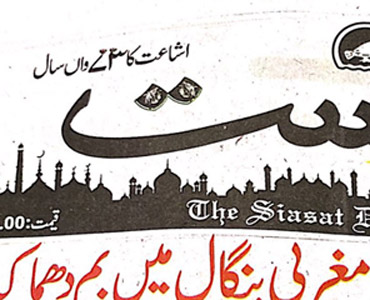 اشاعت کا واں سال
ست
The Siasat D
قیمت: .00
مغربی بنگال میں بم دھماک